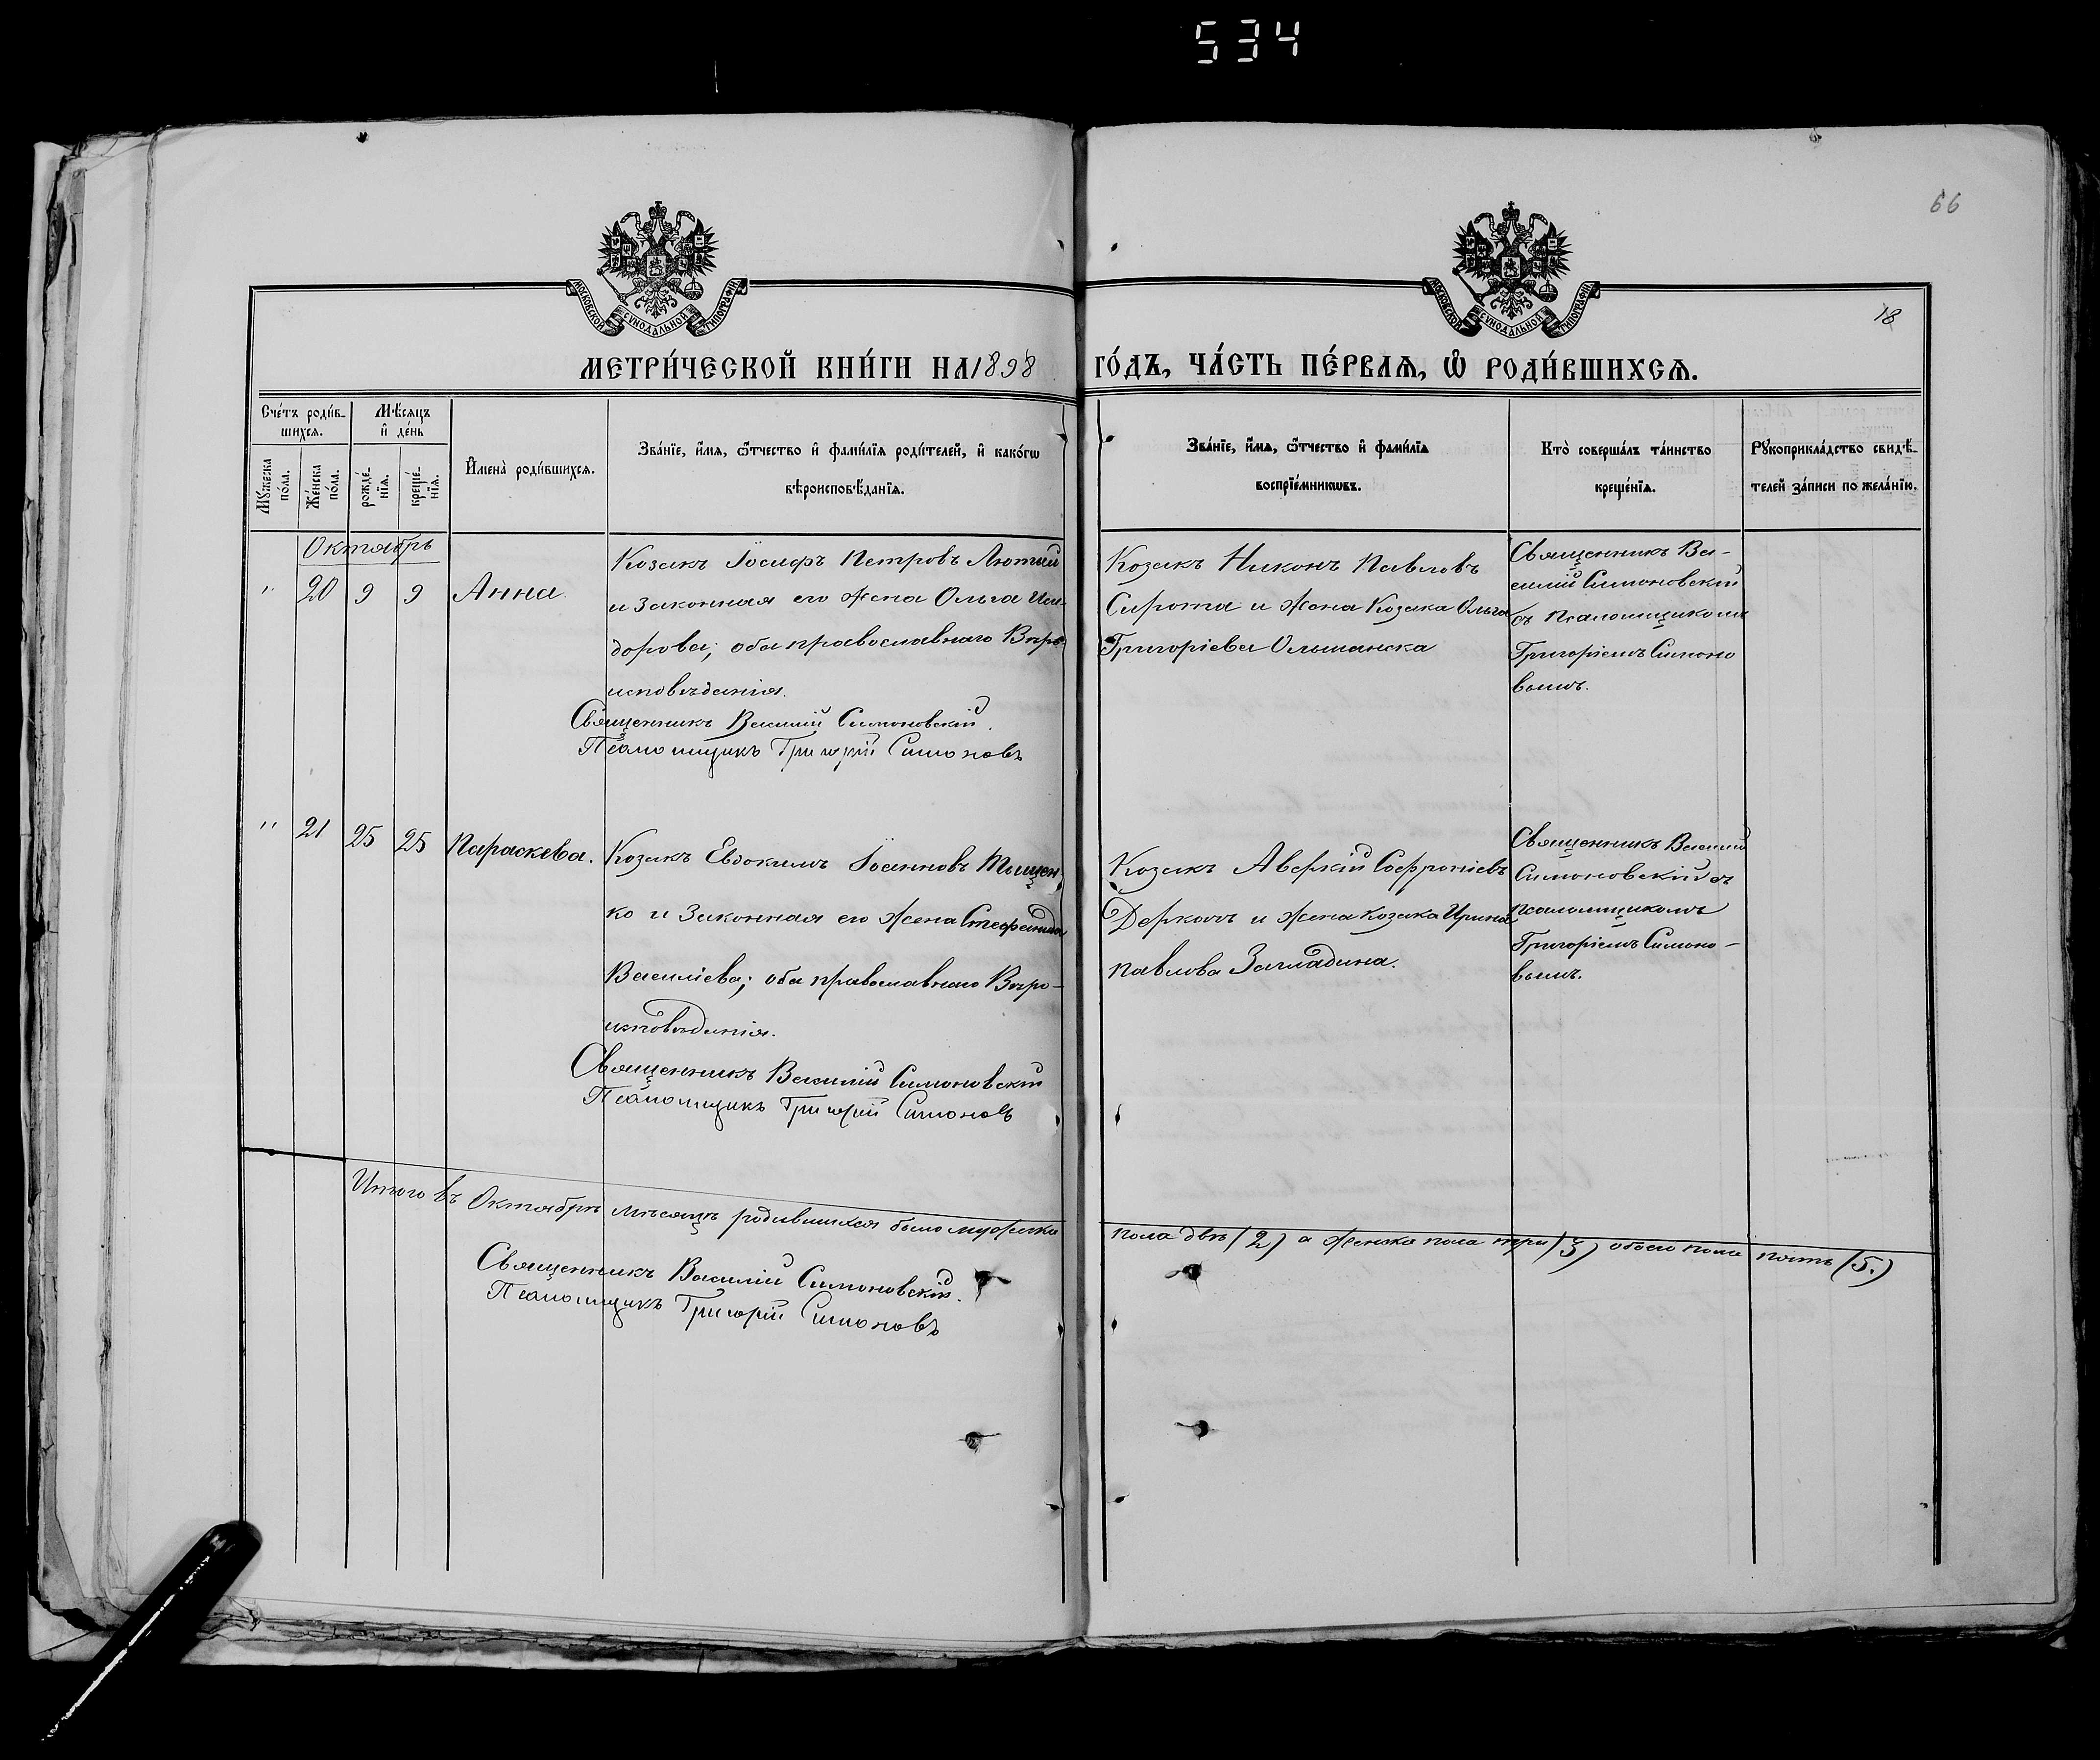 534
66
18
МОСКОВСКОЙ СѴНОДАЛЬНОЙ ТИПОГРАФІИ
МОСКОВСКОЙ СѴНОДАЛЬНОЙ ТИПОГРАФІИ
МЕТРИ́ЧЕСКОЙ КНИ́ГИ НА 1898 ГО́ДЪ, ЧА́СТЬ ПЕ́РВАѦ, Ѡ҆ РОДИ́ВШИХСѦ.
Сче́тъ роди́в-
шихсѧ.
Мꙋ́жеска
по́ла.
Же́нска
по́ла.
Мѣ́сѧцъ
и҆ де́нь
рожде́-
нїѧ.
креще́-
нїѧ.
И҆мена̀ роди́вшихсѧ.
Зва́нїе, и҆́мѧ, ѻ҆́тчество и҆ фами́лїѧ роди́телей, и҆ како́гѡ
вѣроисповѣ́данїѧ.
Зва́нїе, и҆́мѧ, ѻ҆́тчество и҆ фами́лїѧ
воспрїе́мникѡвъ.
Кто̀ соверша́лъ та́инство
креще́нїѧ.
Рꙋкоприкла́дство свидѣ́-
телей за́писи по жела́нїю.
Октябрь
" 20 9 9 Анна.
Козакъ Іосифъ Петровъ Лютый
и законная его жена Ольга Иси-
дорова; оба православнаго Вѣро-
исповѣданія.
Священникъ Василій Симоновскій.
Псаломщикъ Григорій Симоновъ
Козакъ Никонъ Павловъ
Сирота и жена Козака Ольга
Григоріева Ольшанска
Священникъ Ва-
силій Симоновскій
съ Псаломщикомъ
Григоріемъ Симоно
вымъ.
" 21 25 25 Параскева.
Козакъ Евдокимъ Іоанновъ Тищен-
ко и законная его жена Стефанида
Василіева; оба православнаго Вѣро-
исповѣданія.
Священникъ Василій Симоновскій
Псаломщикъ Григорій Симоновъ
Козакъ Аверкій Софроніевъ
Деркачъ и жена козака Ирина
Павлова Загладина.
Священникъ Василій
Симоновскій съ
псаломщикомъ
Григоріемъ Симоно-
вымъ.
Итого въ Октябрѣ мѣсяцѣ родившихся было мужска пола двѣ (2) а женска пола три (3) обоего пола пять (5.)
Священникъ Василій Симоновскій.
Псаломщикъ Григорій Симоновъ